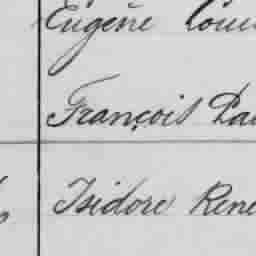 Eugène Loui
François Pau
Isidore René